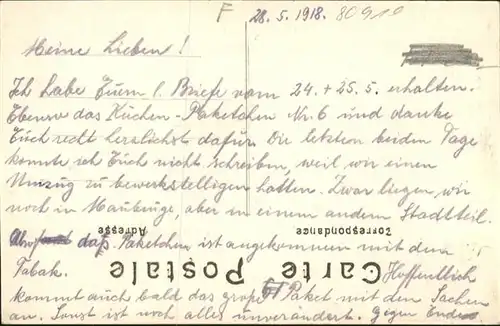 F
28.5.1918. 80910
Meine Lieben!
Ich habe Euern l. Briefe vom 24. + 25.5. erhalten.
Ebenso das Kuchen-Paketchen Nr. 6 und danke
Euch recht herzlichst dafür. Die letzten beiden Tage
konnte ich Euch nicht schreiben, weil wir einen
Umzug zu bewerkstelligen hatten. Zwar liegen wir
noch in Maubeuge, aber in einem andern Stadtteil.
Adresse
Correspondance
daß Paketchen ist angekommen mit dem
Tabak. Hoffentlich
Carte Postale
kommt auch bald das große Paket mit den Sachen
an. Sonst ist noch alles unverändert. Gegen Ende